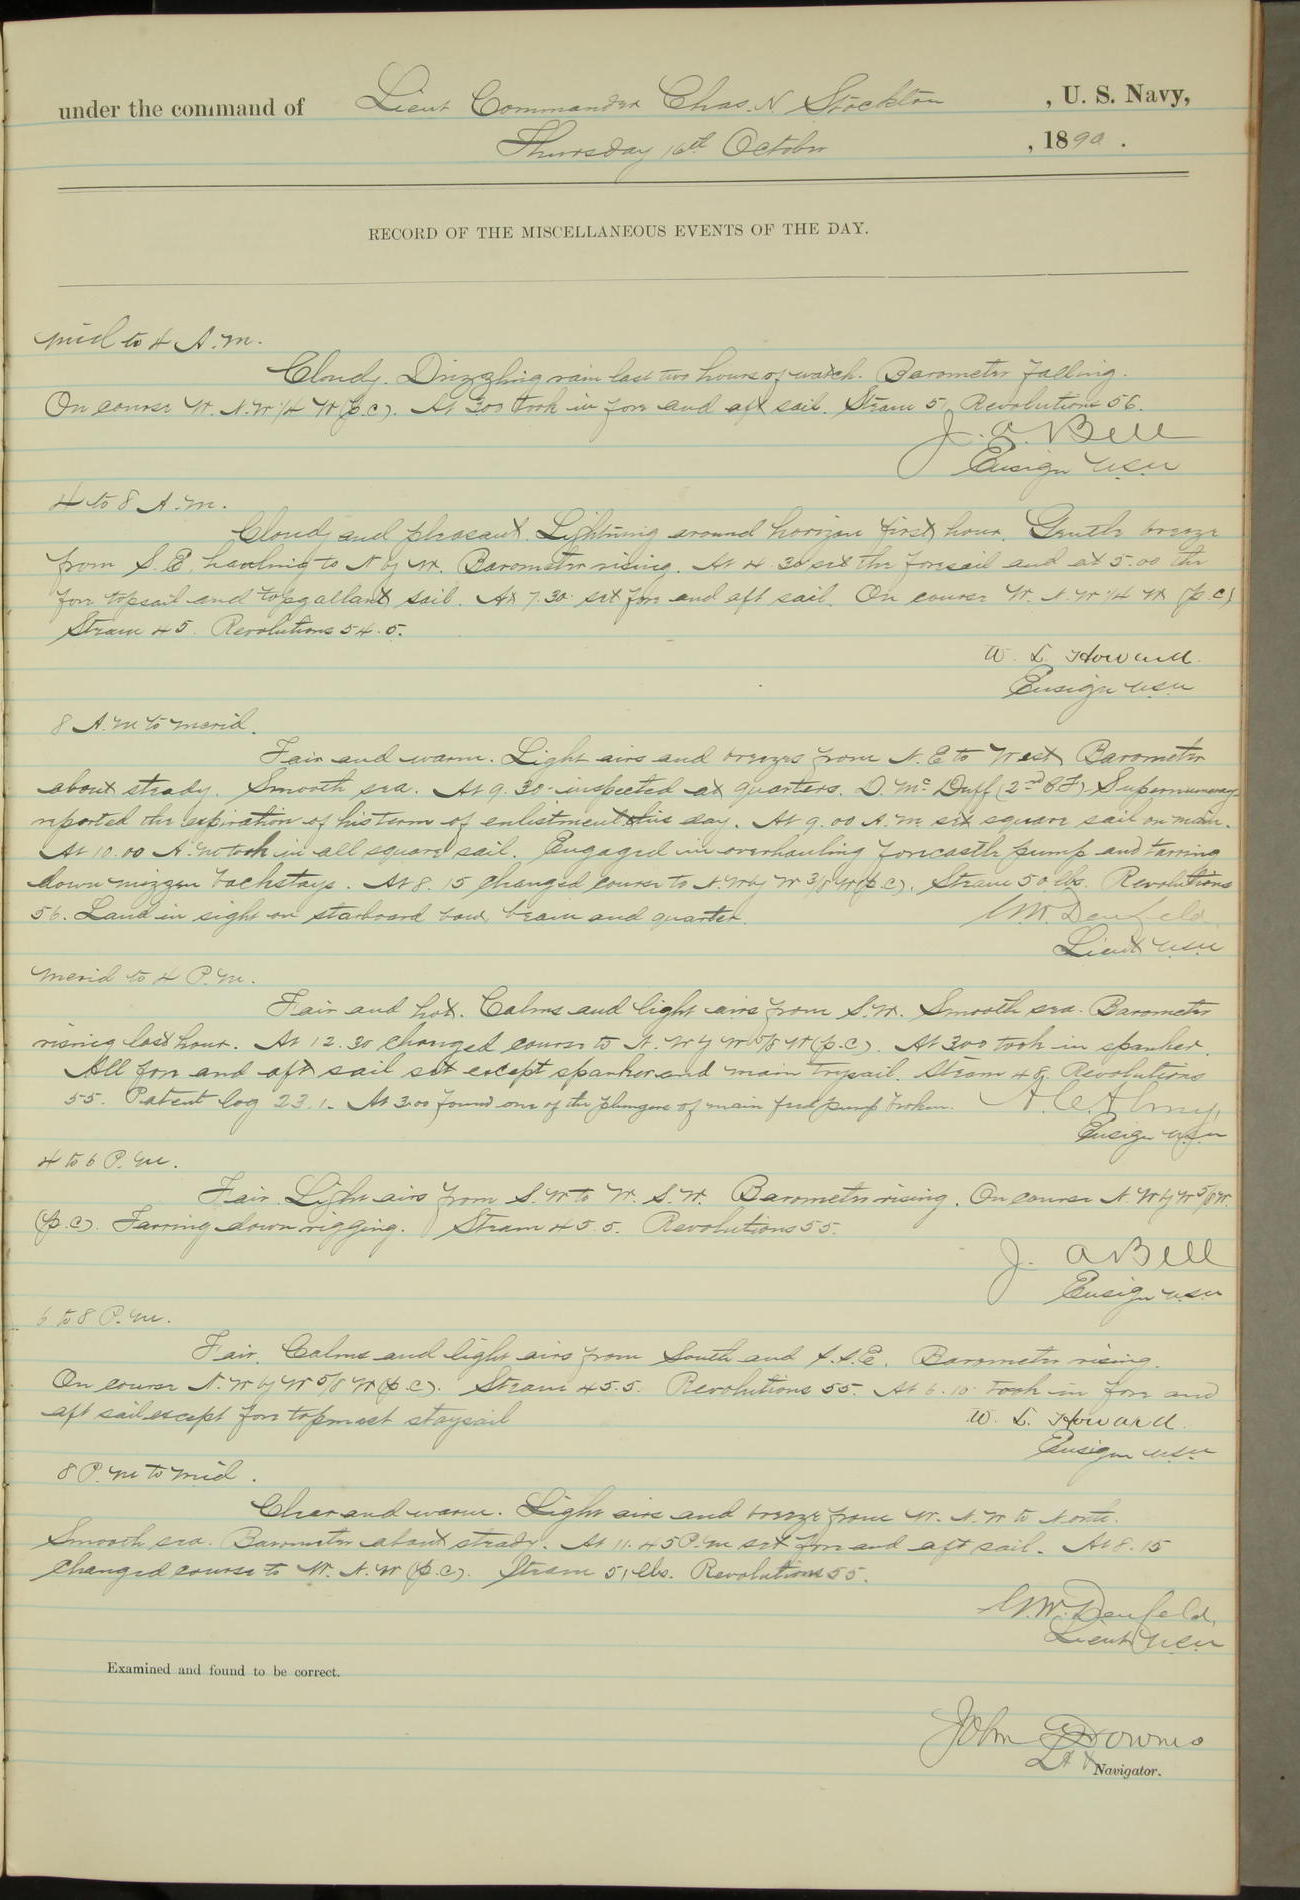 under the command of Lieut Commander Chas. N Stockton , U. S. Navy,
Thursday 16th October , 1890 .
RECORD OF THE MISCELLANEOUS EVENTS OF THE DAY.
Mid to 4 A.M.
Cloudy. Drizzling rain last two hours of watch. Barometer falling.
On course W. N.W 1/4 W (p.c). At 3.00 took in fore and aft sail. Steam 51 Revolutions 56.
J. A. Bell
Ensign USN
4 to 8 A.M.
Cloudy and pleasant. Lightning around horizon first hour. Gentle breeze
from S.E. hauling to N by W. Barometer rising. At 4.30 set the foresail and at 5.00 the
fore topsail and topgallant sail. At 7.30 set fore and aft sail. On course W. N.W 1/4 W (p.c)
Steam 45. Revolutions 54.5.
W. L. Howard
Ensign USN
8 A.M to Merid.
Fair and warm. Light airs and breezes from N.E to West. Barometer
about steady. Smooth sea. At 9.30 inspected at quarters. D. McDuff (2nd C.F.) Supernumerary
reported the expiration of his term of enlistment this day. At 9.00 A.M set square sail on main.
At 10.00 A.M took in all square sail. Engaged in overhauling forecastle pump and tarring
down mizzen backstays. At 8.15 changed course to N.W by W 3/8 W (p.c). Steam 50 lbs. Revolutions
56. Land in sight on starboard bow, beam and quarter. G.W. Denfeld
Lieut USN
Merid to 4 P.M.
Fair and hot. Calms and light airs from S.W. Smooth sea. Barometer
rising last hour. At 12.30 changed course to N.W by W 5/8 W (p.c). At 3.00 took in spanker.
All fore and aft sail set except spanker and main trysail. Steam 48. Revolutions
55. Patent log 23.1. At 3.00 found one of the plungers of main feed pump broken. A.C. Almy,
Ensign USN
4 to 6 P.M.
Fair. Light airs from S.W to W. S.W. Barometer rising. On course N.W by W 5/8 W.
(p.c). Tarring down rigging. Steam 45.5. Revolutions 55.
J. A Bell
Ensign USN
6 to 8 P.M.
Fair. Calms and light airs from South and S.S.E. Barometer rising.
On course N.W by W 5/8 W (p.c). Steam 45.5. Revolutions 55. At 6.10 took in fore and
aft sail except fore topmast staysail
W. L. Howard
Ensign USN
8 P.M to Mid.
Clear and warm. Light airs and breeze from W. N.W to North.
Smooth sea. Barometer about steady. At 11.45 P.M set fore and aft sail. At 8.15
changed course to W. N.W (p.c). Steam 51 lbs. Revolutions 55.
G.W. Denfeld,
Lieut USN
Examined and found to be correct.
John Downes
Lt &
Navigator.